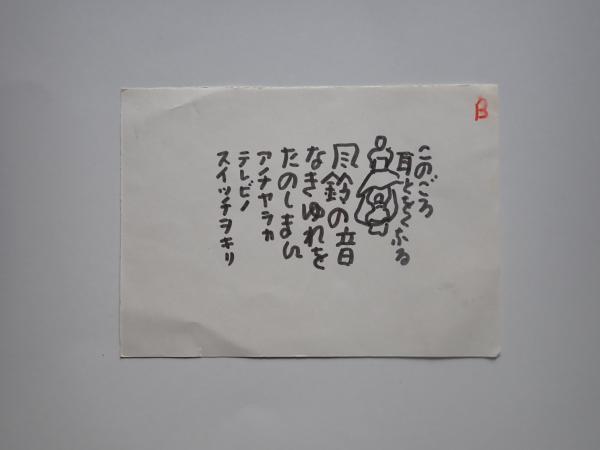 B
このごろ
耳とをくふる
風鈴の音
なきゆれを
たのしまん
アノチヤラカ
テレビノ
スイッチヲキリ